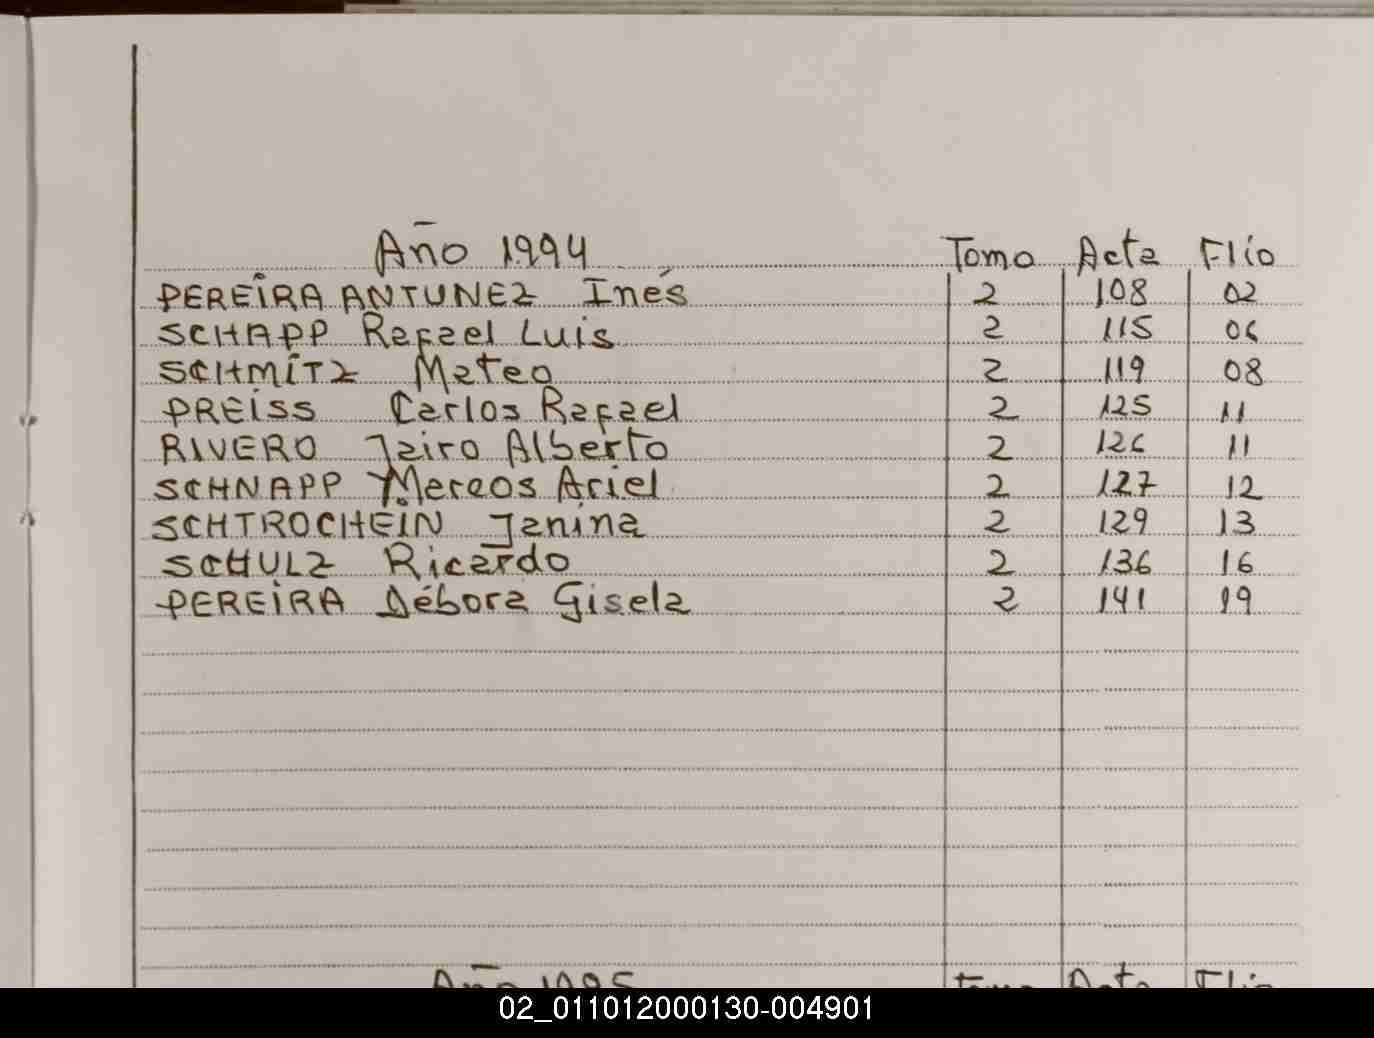 Año 1994 Tomo Acta Flio
PEREIRA ANTUNEZ Inés 2 108 02
SCHAPP Rafael Luis 2 115 06
SCHMITZ Mateo 2 119 08
PREISS Carlos Rafael 2 125 11
RIVERO Jairo Alberto 2 126 11
SCHNAPP Marcos Ariel 2 127 12
SCHTROCHEIN Janina 2 129 13
SCHULZ Ricardo 2 136 16
PEREIRA Débora Gisela 2 141 19
Año 1995 Tomo Acta Flio
02_011012000130-004901